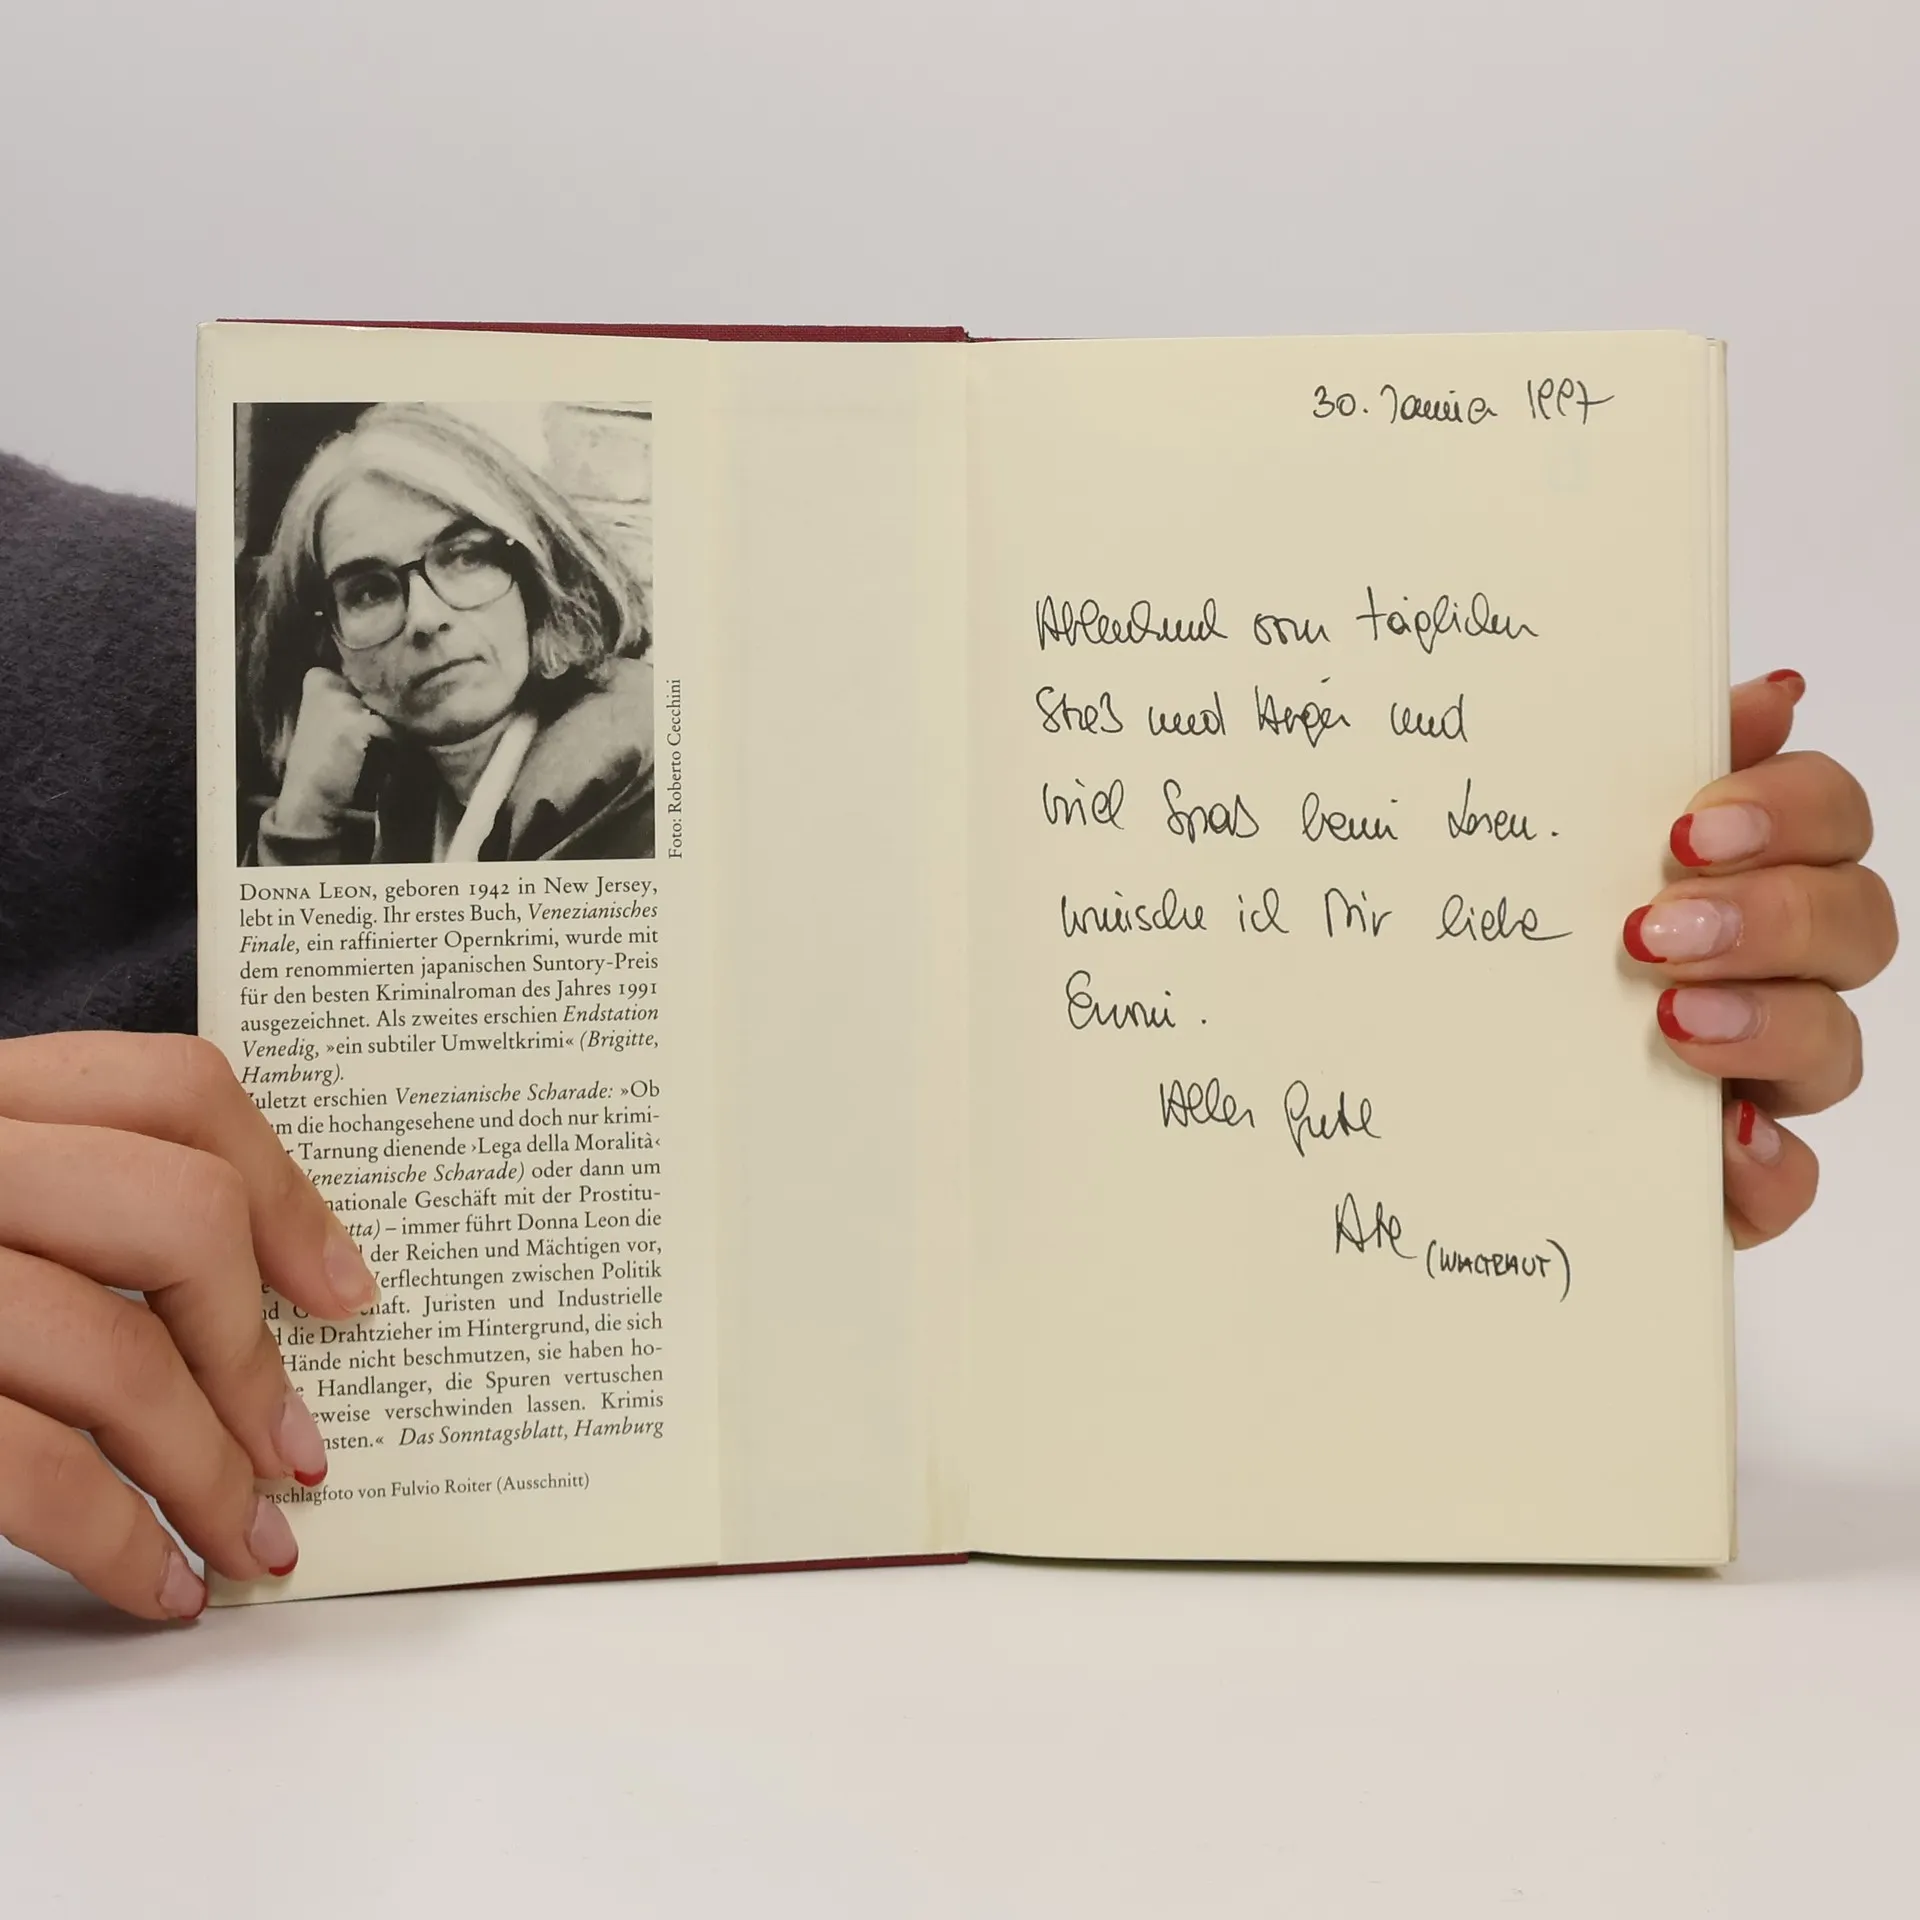 Foto: Roberto Cecchini
DONNA LEON, geboren 1942 in New Jersey,
lebt in Venedig. Ihr erstes Buch, Venezianisches
Finale, ein raffinierter Opernkrimi, wurde mit
dem renommierten japanischen Suntory-Preis
für den besten Kriminalroman des Jahres 1991
ausgezeichnet. Als zweites erschien Endstation
Venedig, »ein subtiler Umweltkrimi« (Brigitte,
Hamburg).
uletzt erschien Venezianische Scharade: »Ob
m die hochangesehene und doch nur krimi-
r Tarnung dienende ›Lega della Moralità‹
enezianische Scharade) oder dann um
nationale Geschäft mit der Prostitu-
tta) – immer führt Donna Leon die
der Reichen und Mächtigen vor,
erflechtungen zwischen Politik
nd haft. Juristen und Industrielle
d die Drahtzieher im Hintergrund, die sich
Hände nicht beschmutzen, sie haben ho-
e Handlanger, die Spuren vertuschen
eweise verschwinden lassen. Krimis
nsten.« Das Sonntagsblatt, Hamburg
nschlagfoto von Fulvio Roiter (Ausschnitt)
30. Januar 1997
vom täglichen
Streß und Ärger und
viel Spaß beim Lesen.
wünsche ich Dir liebe
Alles Gute
(WALTRAUT)